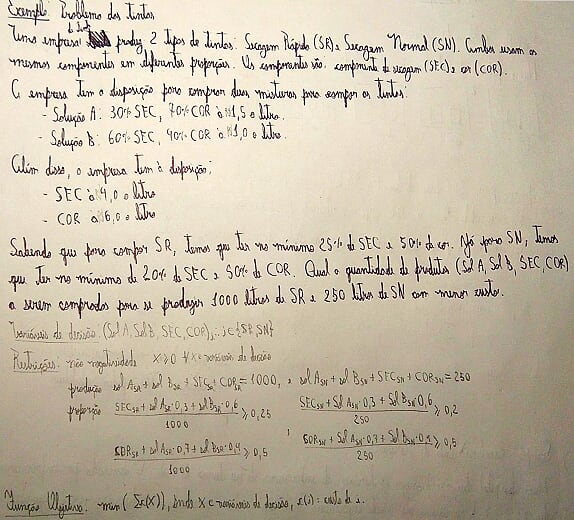 Exemplo: Problema das Tintas
Uma empresa de tintas produz 2 tipos de tintas: Secagem Rápida (SR) e Secagem Normal (SN). Ambas usam os
mesmos componentes em diferentes proporções. Os componentes são: componente de secagem (SEC) e cor (COR).
A empresa tem a disposição para comprar duas misturas para compor as tintas:
- Solução A: 30% SEC, 70% COR à 1,5 o litro.
- Solução B: 60% SEC, 40% COR à 1,0 o litro.
Além disso, a empresa tem à disposição;
- SEC à 4,0 o litro
- COR à 6,0 o litro
Sabendo que para compor SR, temos que ter no mínimo 25% de SEC e 50% de cor. Já para SN, temos
que ter no mínimo de 20% de SEC e 50% de COR. Qual a quantidade de produtos (Sol A, Sol B, SEC, COR)
a serem comprados para se produzir 1000 litros de SR e 250 litros de SN com menor custo.
Variáveis de decisão: (Sol A, Sol B, SEC, COR)j, j ∈ {SR, SN}
Restrições: não negatividade X≥0 ∀X ∈ variáveis de decisão
produção sol A_SR + sol B_SR + SEC_SR + COR_SR = 1000, e sol A_SN + sol B_SN + SEC_SN + COR_SN = 250
proporção (SEC_SR + sol A_SR·0,3 + sol B_SR·0,6)/1000 ≥ 0,25 (SEC_SN + Sol A_SN·0,3 + Sol B_SN·0,6)/250 ≥ 0,2
(COR_SR + sol A_SR·0,7 + sol B_SR·0,4)/1000 ≥ 0,5 ; (COR_SN + Sol A_SN·0,7 + Sol B_SN·0,4)/250 ≥ 0,5
Função Objetivo: min(Σc(X)), onde X ∈ variáveis de decisão, c(i): custo de i.